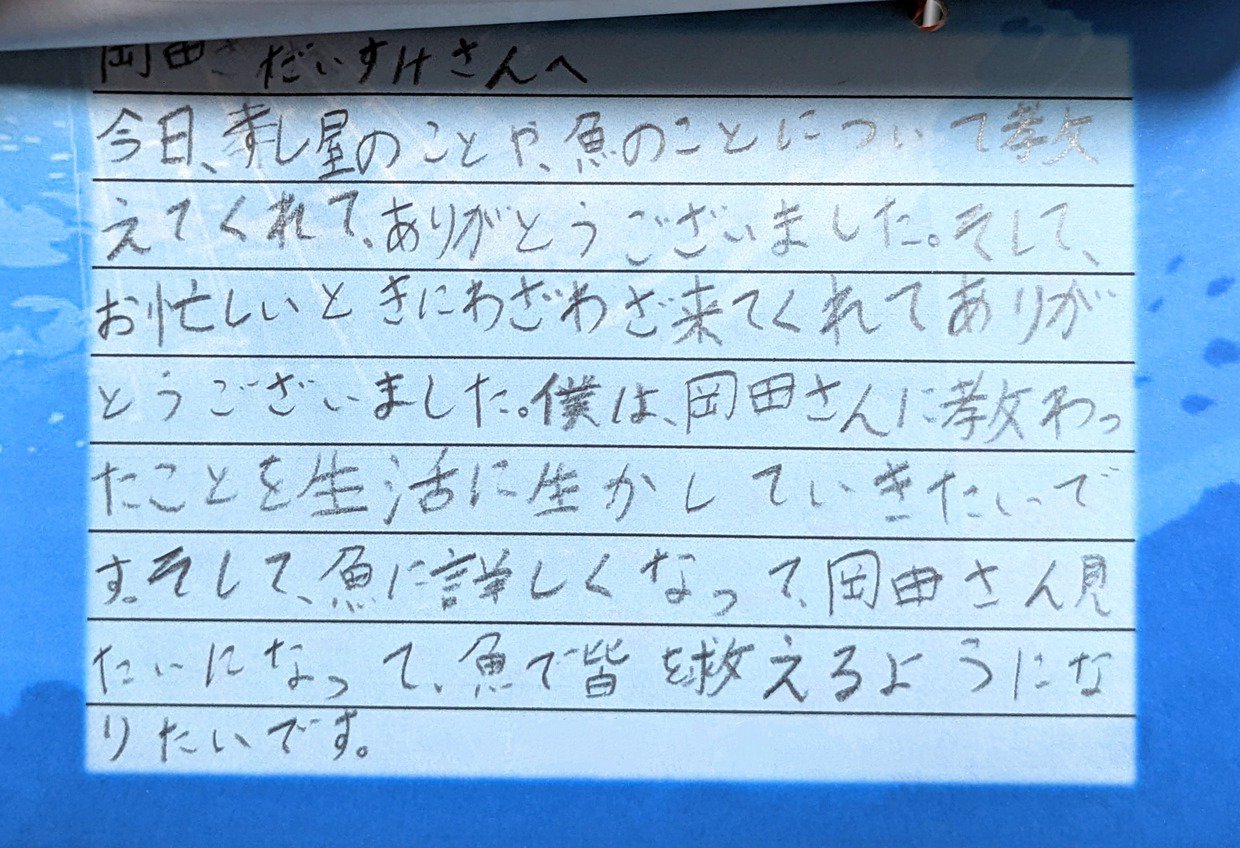 岡田さ だいすけさんへ
今日、すし屋のことや、魚のことについて教
えてくれて、ありがとうございました。そして、
お忙しいときにわざわざ来てくれてありが
とうございました。僕は、岡田さんに教わっ
たことを生活に生かしていきたいで
す。そして、魚に詳しくなって、岡田さん見
たいになって、魚で皆を救えるようにな
りたいです。